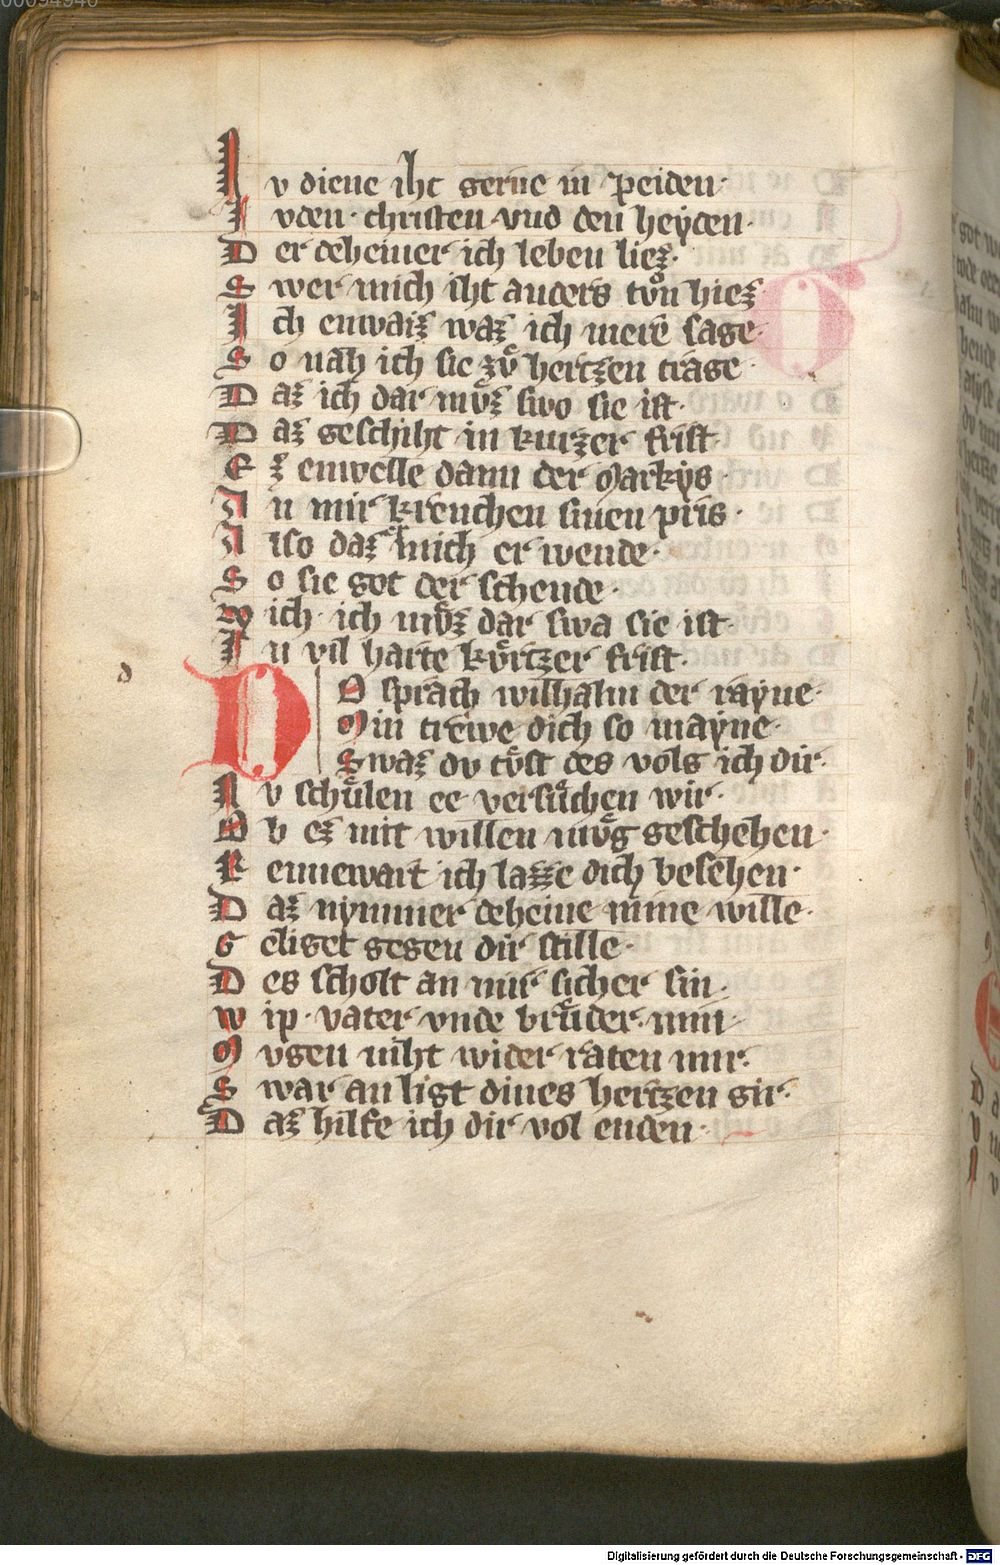 00694946
I v diene iht gerne in peiden·
I vden· christen vnd den heyden·
D er deheiner ich leben liez·
S wer mich iht anders tvͦn hiez·
I ch enwaiz waz ich mere sage·
S o nah ich sie zvͦ hertzen trage·
D az ich dar mvͦz swo sie ist·
D az geschiht in kurzer frist·
E z enwelle dann der Markys
A n mir krenchen sinen pris·
A lso daz mich er wende·
S o sie got der schende·
W ich· ich mvͦz dar swa sie ist·
I n vil harte kvͦrtzer frist·
d
D O sprach wilhalm der rayne·
M in trewe dich so mayne·
S waz dv tvͦst des vols ich dir·
N v schuͤlen ee versuͦchen wir·
O b ez mit willen mvͦg geschehen·
R ennewart ich lazze dich besehen·
D az nymmer deheine mine wille·
G eliget gegen dir stille·
D es scholt an mir sicher sin·
W ip· vater vnde bruͦder· min
M vgen niht wider raten mir·
S war an ligt dines hertzen gir·
D az hilfe ich dir vol enden·
Digitalisierung gefördert durch die Deutsche Forschungsgemeinschaft - DFG